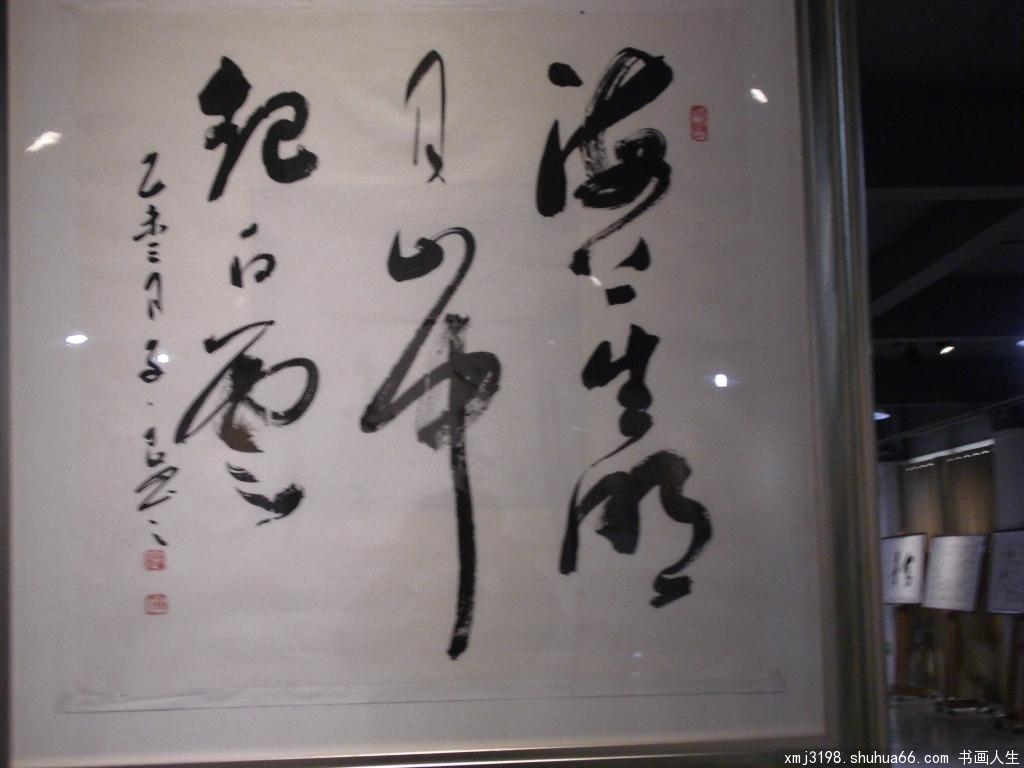 海上生明
月山中
起白云
乙未三月
xmj3198.shuhua66.com 书画人生